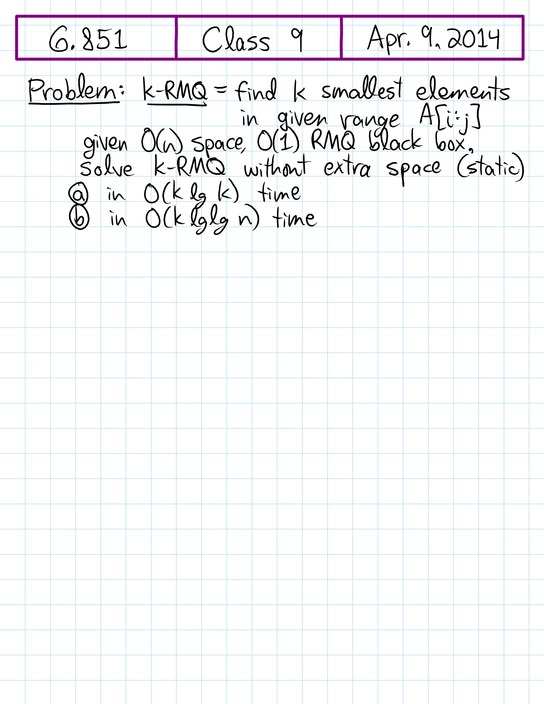 6.851 Class 9 Apr. 9, 2014
Problem: k-RMQ = find k smallest elements
in given range A[i:j]
given O(n) space, O(1) RMQ black box,
solve k-RMQ without extra space (static)
ⓐ in O(k lg k) time
ⓑ in O(k lglg n) time